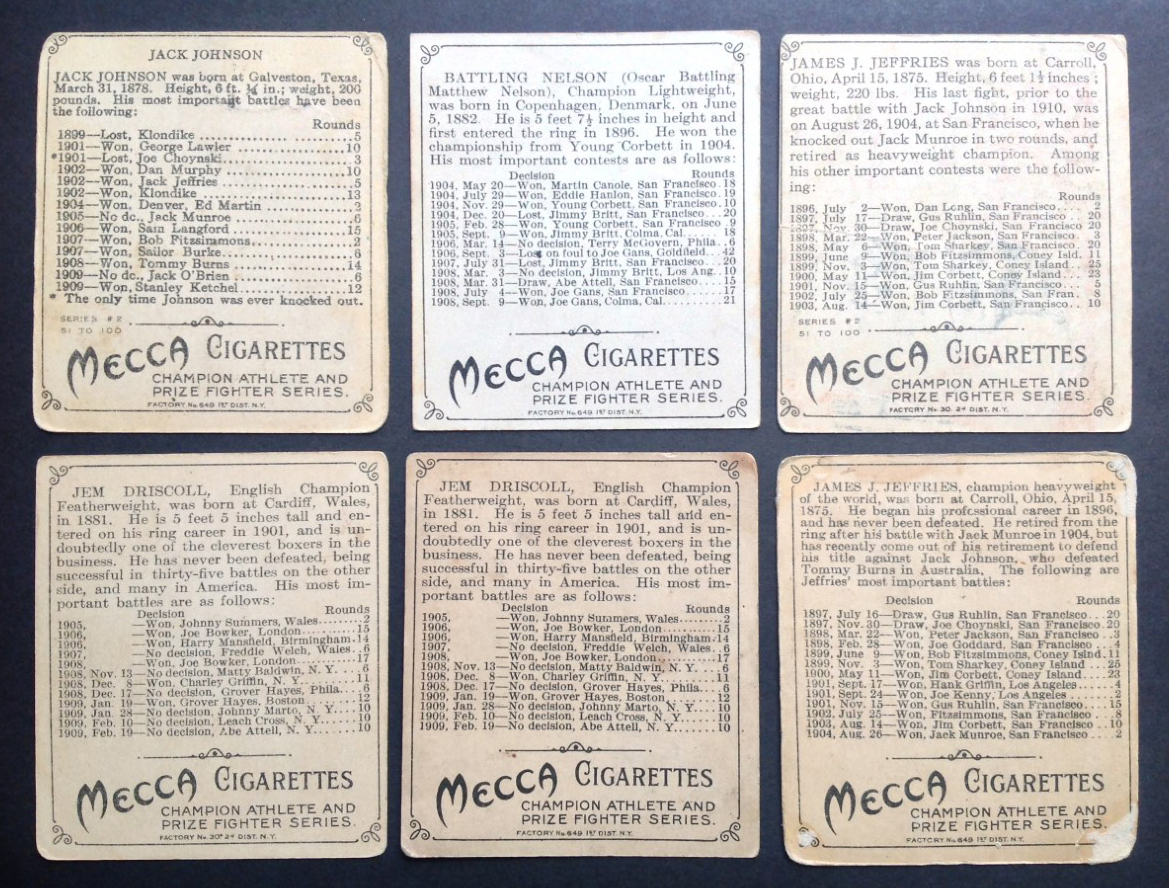 JACK JOHNSON
JACK JOHNSON was born at Galveston, Texas,
March 31, 1878. Height, 6 ft. ¼ in.; weight, 200
pounds. His most important battles have been
the following:
Rounds
1899—Lost, Klondike 5
1901—Won, George Lawler 10
*1901—Lost, Joe Choynski 3
1902—Won, Dan Murphy 10
1902—Won, Jack Jeffries 5
1902—Won, Klondike 13
1904—Won, Denver, Ed Martin 2
1905—No dc., Jack Munroe 6
1906—Won, Sam Langford 15
1907—Won, Bob Fitzsimmons 2
1907—Won, Sailor Burke 6
1908—Won, Tommy Burns 14
1909—No dc., Jack O'Brien 6
1909—Won, Stanley Ketchel 12
* The only time Johnson was ever knocked out.
SERIES #2
51 TO 100
MECCA CIGARETTES
CHAMPION ATHLETE AND
PRIZE FIGHTER SERIES.
FACTORY No. 649 1ST DIST. N.Y.
BATTLING NELSON (Oscar Battling
Matthew Nelson), Champion Lightweight,
was born in Copenhagen, Denmark, on June
5, 1882. He is 5 feet 7½ inches in height and
first entered the ring in 1896. He won the
championship from Young Corbett in 1904.
His most important contests are as follows:
Decision Rounds
1904, May 20—Won, Martin Canole, San Francisco. 18
1904, July 29—Won, Eddie Hanlon, San Francisco. 19
1904, Nov. 29—Won, Young Corbett, San Francisco. 10
1904, Dec. 20—Lost, Jimmy Britt, San Francisco... 20
1905, Feb. 28—Won, Young Corbett, San Francisco . 9
1905, Sept. 9—Won, Jimmy Britt, Colma, Cal. 18
1906, Mar. 14—No decision, Terry McGovern, Phila.. 6
1906, Sept. 3—Lost on foul to Joe Gans, Goldfield... 42
1907, July 31—Lost, Jimmy Britt, San Francisco 20
1908, Mar. 3—No decision, Jimmy Britt, Los Ang.. 10
1908, Mar. 31—Draw, Abe Attell, San Francisco 15
1908, July 4—Won, Joe Gans, San Francisco 17
1908, Sept. 9—Won, Joe Gans, Colma, Cal. 21
MECCA CIGARETTES
CHAMPION ATHLETE AND
PRIZE FIGHTER SERIES.
FACTORY No. 649 1ST DIST. N.Y.
JAMES J. JEFFRIES was born at Carroll,
Ohio, April 15, 1875. Height, 6 feet 1½ inches;
weight, 220 lbs. His last fight, prior to the
great battle with Jack Johnson in 1910, was
on August 26, 1904, at San Francisco, when he
knocked out Jack Munroe in two rounds, and
retired as heavyweight champion. Among
his other important contests were the follow-
ing:
Rounds
1896, July 2—Won, Dan Long, San Francisco 2
1897, July 17—Draw, Gus Ruhlin, San Francisco .. 20
1897, Nov. 30—Draw, Joe Choynski, San Francisco . 20
1898, Mar. 22—Won, Peter Jackson, San Francisco . 3
1898, May 6—Won, Tom Sharkey, San Francisco . 20
1899, June 9—Won, Bob Fitzsimmons, Coney Isld. 11
1899, Nov. 3—Won, Tom Sharkey, Coney Island ... 25
1900, May 11—Won, Jim Corbett, Coney Island 23
1901, Nov. 15—Won, Gus Ruhlin, San Francisco 5
1902, July 25—Won, Bob Fitzsimmons, San Fran. 8
1903, Aug. 14—Won, Jim Corbett, San Francisco .. 10
SERIES #2
51 TO 100
MECCA CIGARETTES
CHAMPION ATHLETE AND
PRIZE FIGHTER SERIES.
FACTORY No. 30. 2d DIST. N.Y.
JEM DRISCOLL, English Champion
Featherweight, was born at Cardiff, Wales,
in 1881. He is 5 feet 5 inches tall and en-
tered on his ring career in 1901, and is un-
doubtedly one of the cleverest boxers in the
business. He has never been defeated, being
successful in thirty-five battles on the other
side, and many in America. His most im-
portant battles are as follows:
Decision Rounds
1905, —Won, Johnny Summers, Wales 2
1906, —Won, Joe Bowker, London 15
1906, —Won, Harry Mansfield, Birmingham. 14
1907, —No decision, Freddie Welch, Wales.. 6
1908, —Won, Joe Bowker, London 17
1908, Nov. 13—No decision, Matty Baldwin, N. Y. 6
1908, Dec. 8—Won, Charley Griffin, N. Y. 11
1908, Dec. 17—No decision, Grover Hayes, Phila. 6
1909, Jan. 19—Won, Grover Hayes, Boston 12
1909, Jan. 28—No decision, Johnny Marto, N. Y. 10
1909, Feb. 10—No decision, Leach Cross, N. Y. 10
1909, Feb. 19—No decision, Abe Attell, N. Y. 10
MECCA CIGARETTES
CHAMPION ATHLETE AND
PRIZE FIGHTER SERIES.
FACTORY No. 30 2d DIST. N.Y.
JEM DRISCOLL, English Champion
Featherweight, was born at Cardiff, Wales,
in 1881. He is 5 feet 5 inches tall and en-
tered on his ring career in 1901, and is un-
doubtedly one of the cleverest boxers in the
business. He has never been defeated, being
successful in thirty-five battles on the other
side, and many in America. His most im-
portant battles are as follows:
Decision Rounds
1905, —Won, Johnny Summers, Wales 2
1906, —Won, Joe Bowker, London 15
1906, —Won, Harry Mansfield, Birmingham. 14
1907, —No decision, Freddie Welch, Wales.. 6
1908, —Won, Joe Bowker, London 17
1908, Nov. 13—No decision, Matty Baldwin, N. Y. 6
1908, Dec. 8—Won, Charley Griffin, N. Y. 11
1908, Dec. 17—No decision, Grover Hayes, Phila. 6
1909, Jan. 19—Won, Grover Hayes, Boston 12
1909, Jan. 28—No decision, Johnny Marto, N. Y. 10
1909, Feb. 10—No decision, Leach Cross, N. Y. 10
1909, Feb. 19—No decision, Abe Attell, N. Y. 10
MECCA CIGARETTES
CHAMPION ATHLETE AND
PRIZE FIGHTER SERIES.
FACTORY No. 649 1ST DIST. N.Y.
JAMES J. JEFFRIES, champion heavyweight
of the world, was born at Carroll, Ohio, April 15,
1875. He began his professional career in 1896,
and has never been defeated. He retired from the
ring after his battle with Jack Munroe in 1904, but
has recently come out of his retirement to defend
his title against Jack Johnson, who defeated
Tommy Burns in Australia. The following are
Jeffries' most important battles:
Decision Rounds
1897, July 16—Draw, Gus Ruhlin, San Francisco .. 20
1897, Nov. 30—Draw, Joe Choynski, San Francisco . 20
1898, Mar. 22—Won, Peter Jackson, San Francisco .. 3
1898, Feb. 28—Won, Joe Goddard, San Francisco 4
1899, June 9—Won, Bob Fitzsimmons, Coney Islnd. 11
1899, Nov. 3—Won, Tom Sharkey, Coney Island ... 25
1900, May 11—Won, Jim Corbett, Coney Island 23
1901, Sept. 17—Won, Hank Griffin, Los Angeles 4
1901, Sept. 24—Won, Joe Kenny, Los Angeles 2
1901, Nov. 15—Won, Gus Ruhlin, San Francisco 15
1902, July 25—Won, Fitzsimmons, San Francisco .. 8
1903, Aug. 14—Won, Jim Corbett, San Francisco 10
1904, Aug. 26—Won, Jack Munroe, San Francisco ... 2
MECCA CIGARETTES
CHAMPION ATHLETE AND
PRIZE FIGHTER SERIES.
FACTORY No. 649 1ST DIST. N.Y.